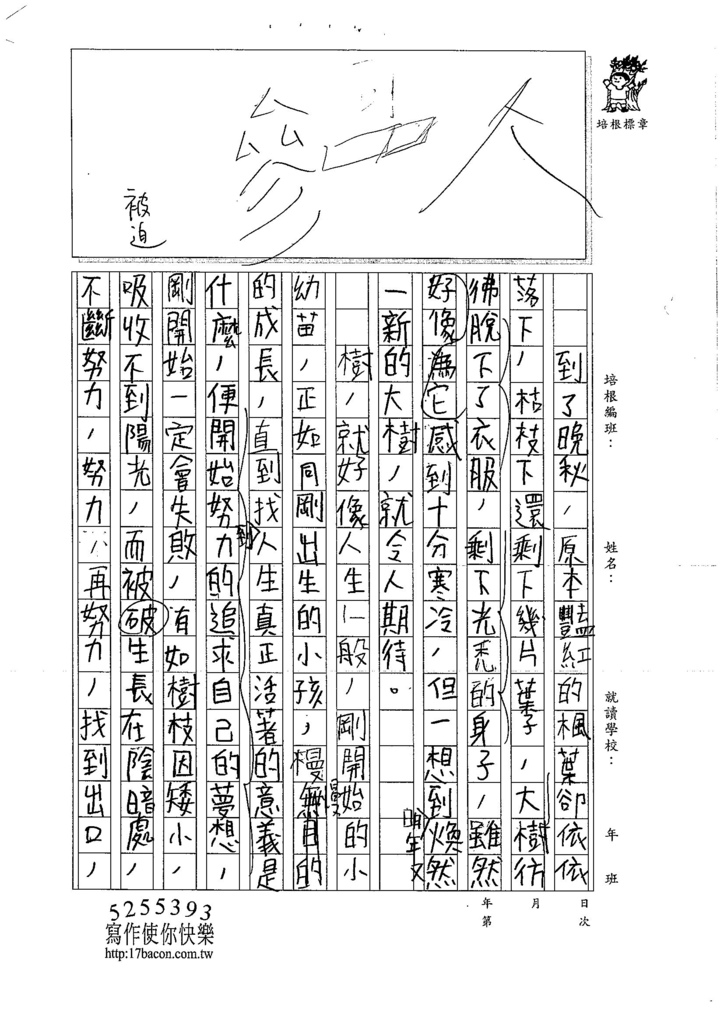 培根標章
人
參
被迫
培根編班：
姓名：
就讀學校：
年
班
日
次
月
年
第
到了晚秋，原本豔紅的楓葉卻依依
落下，枯枝下還剩下幾片葉子，大樹彷
彿脫下了衣服，剩下光禿的身子，雖然
好像為它感到十分寒冷，但一想到煥然
一新的大樹，就令人期待。
明年又
樹，就好像人生一般，剛開始的小
幼苗，正如同剛出生的小孩，漫無目的
慢
的成長，直到找人生真正活著的意義是
到
什麼，便開始努力的追求自己的夢想，
剛開始一定會失敗，有如樹枝因矮小，
吸收不到陽光，而被破生長在陰暗處，
不斷努力，努力，再努力，找到出口，
5255393
寫作使你快樂
http:17bacon.com.tw